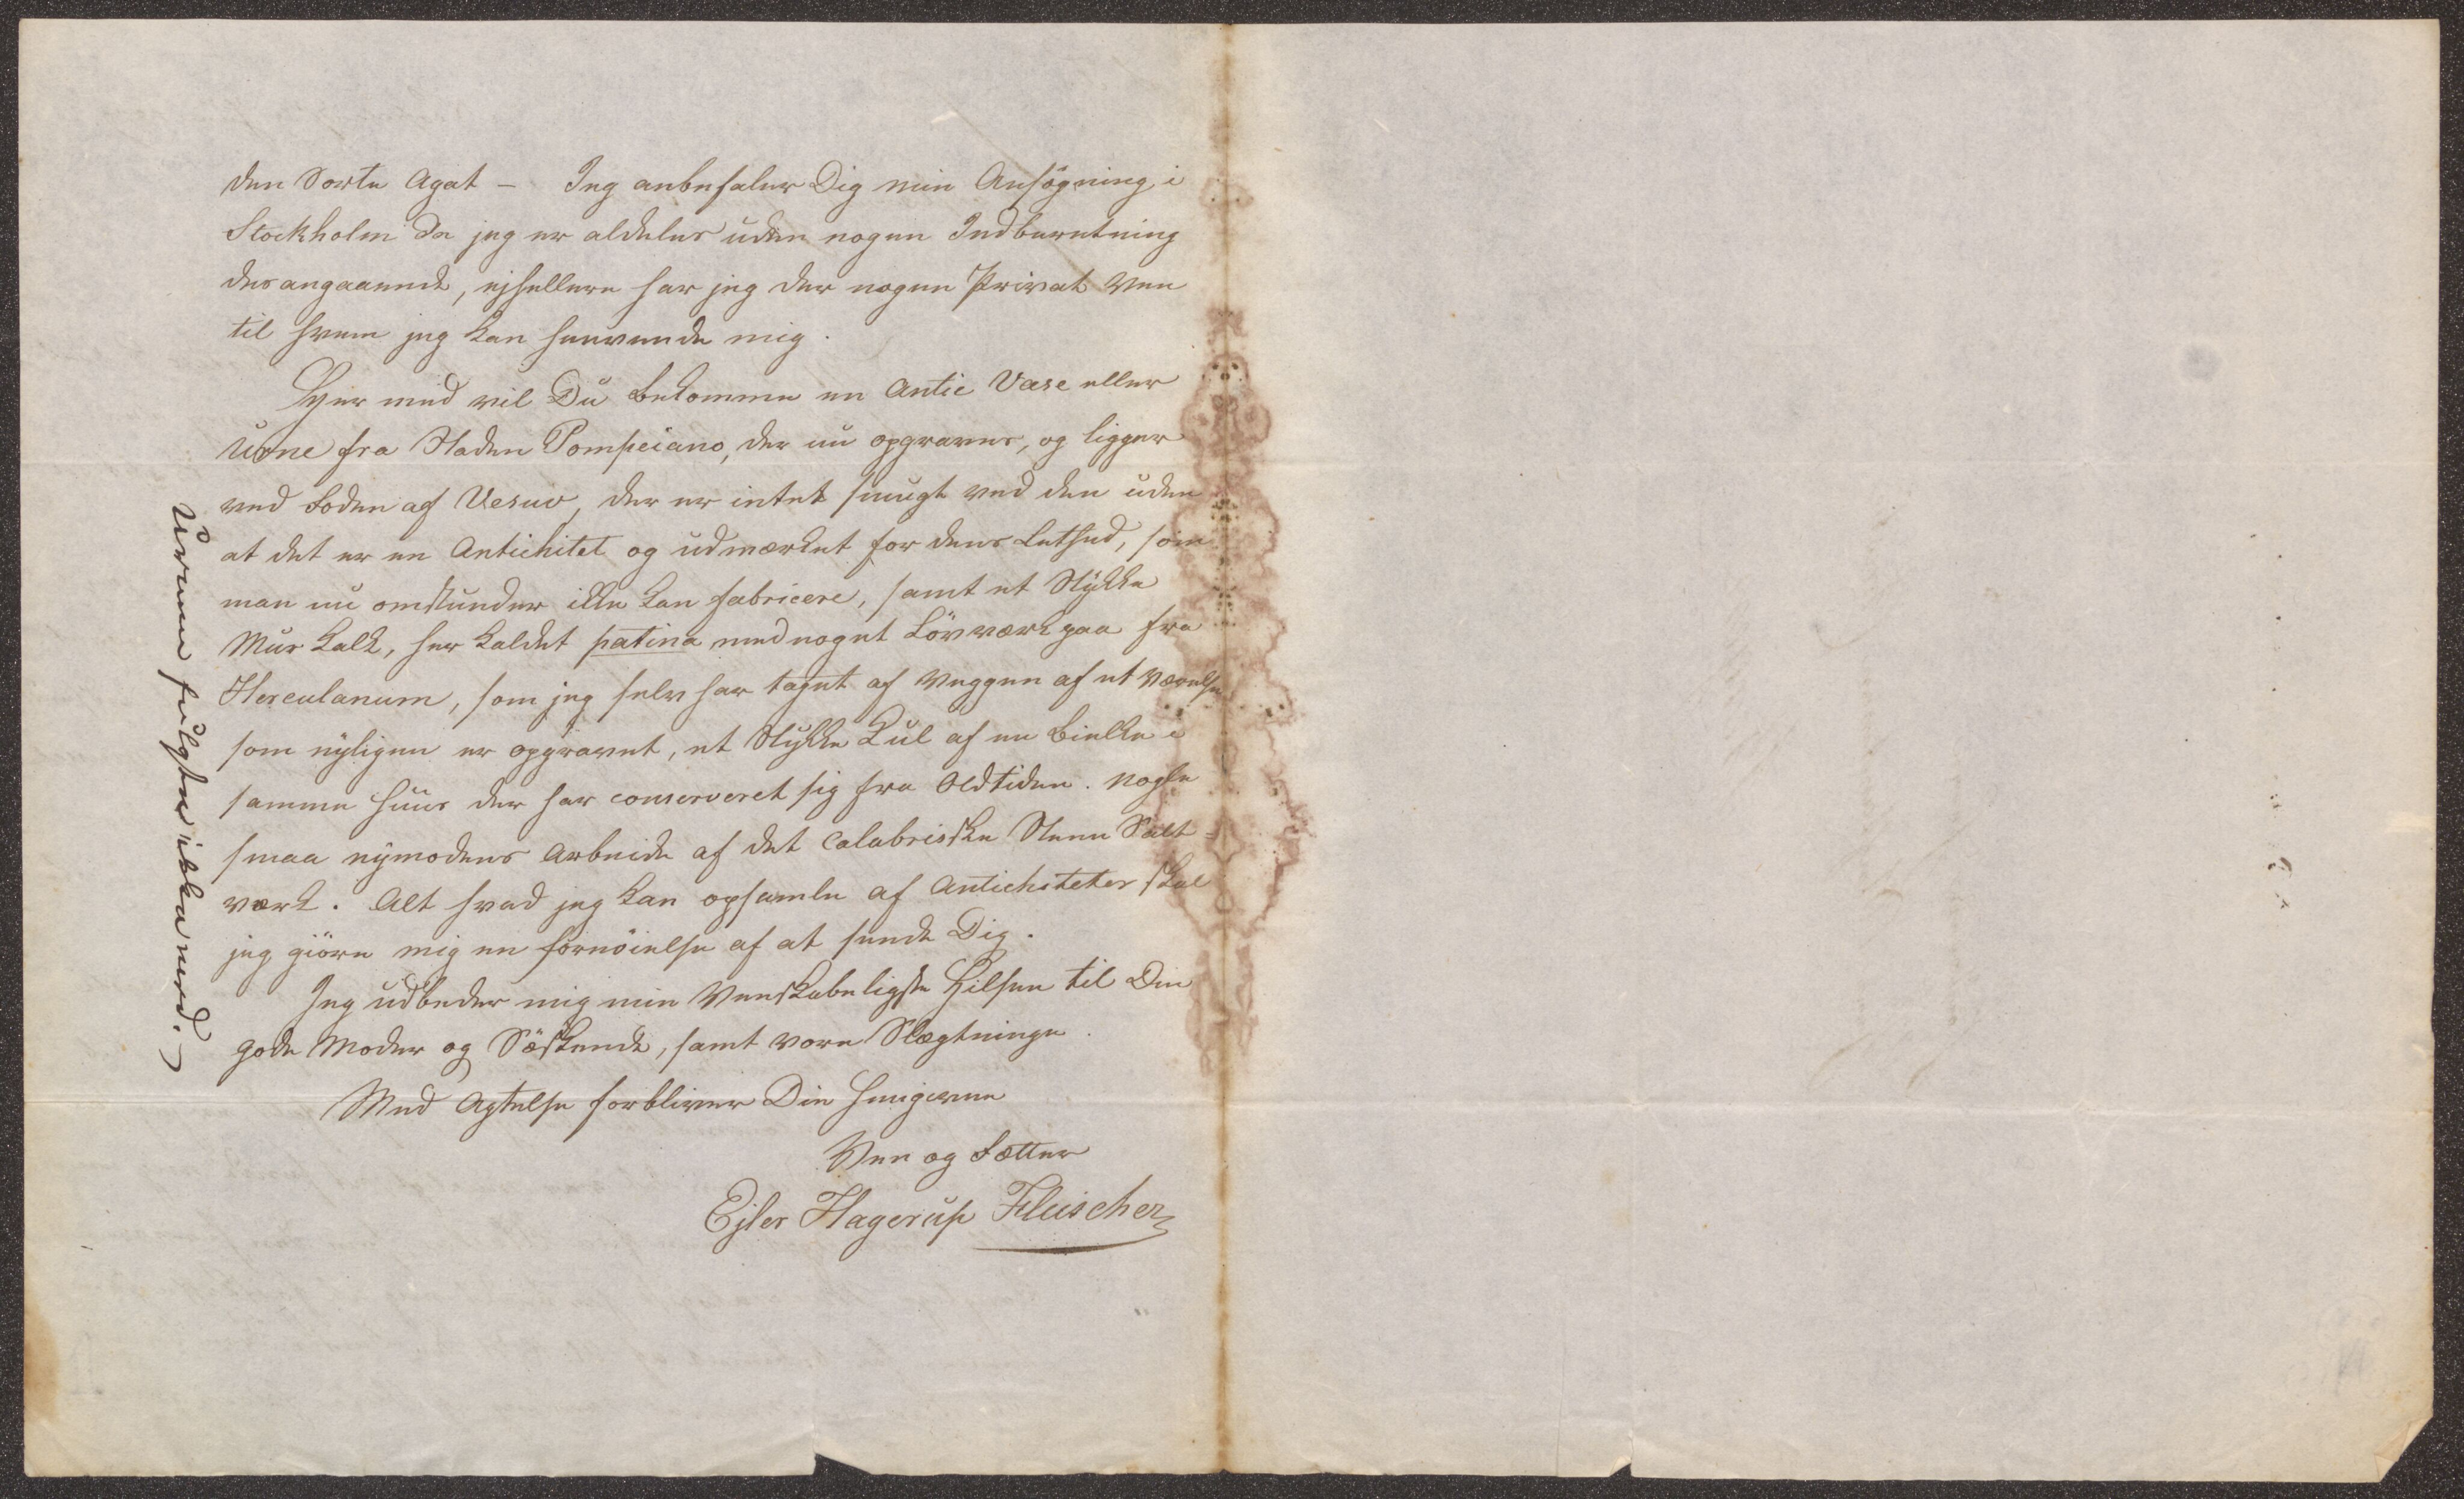 den Sorte Agat – Jeg anbefaler Dig min Ansögning i
Stockholm da jeg er aldeles uden nogen Indberetning
des angaaende, ejhellere har jeg der nogen Privat Ven
til hvem jeg kan henvende mig.
Hjer med vil Du bekomme en Antic Vase eller
Urne fra Staden Pompeiano, der nu opgraves, og ligger
ved Foden af Vesuv, der er intet smugt ved den uden
at det er en Antichitet og udmærket for dens Lethed, som
man nu omstunder ikke kan fabricere, samt et Stykke
Mur Kalk, her kaldet patina med noget Lövværk paa fra
Herculanum, som jeg selv har taget af Veggen af et Værelse
som nyligen er opgravet, et Stykke Kul af en Bielke i
samme Huus der har conserveret sig fra Oldtiden. Nogle
smaa nymodens Arbeide af det Calabriske Steen Salt=
værk. Alt hvad jeg kan opsamle af Antichiteter skal
jeg giöre mig en fornöielse af at sende Dig.
Jeg udbeder mig min Venskabeligste Hilsen til Din
gode Moder og Söskende, samt vore Slægtninge.
Med Agtelse forbliver Din hengivne
Ven og Fætter
Ejler Hagerup Fleischer
Urnen fulgte ikke med.